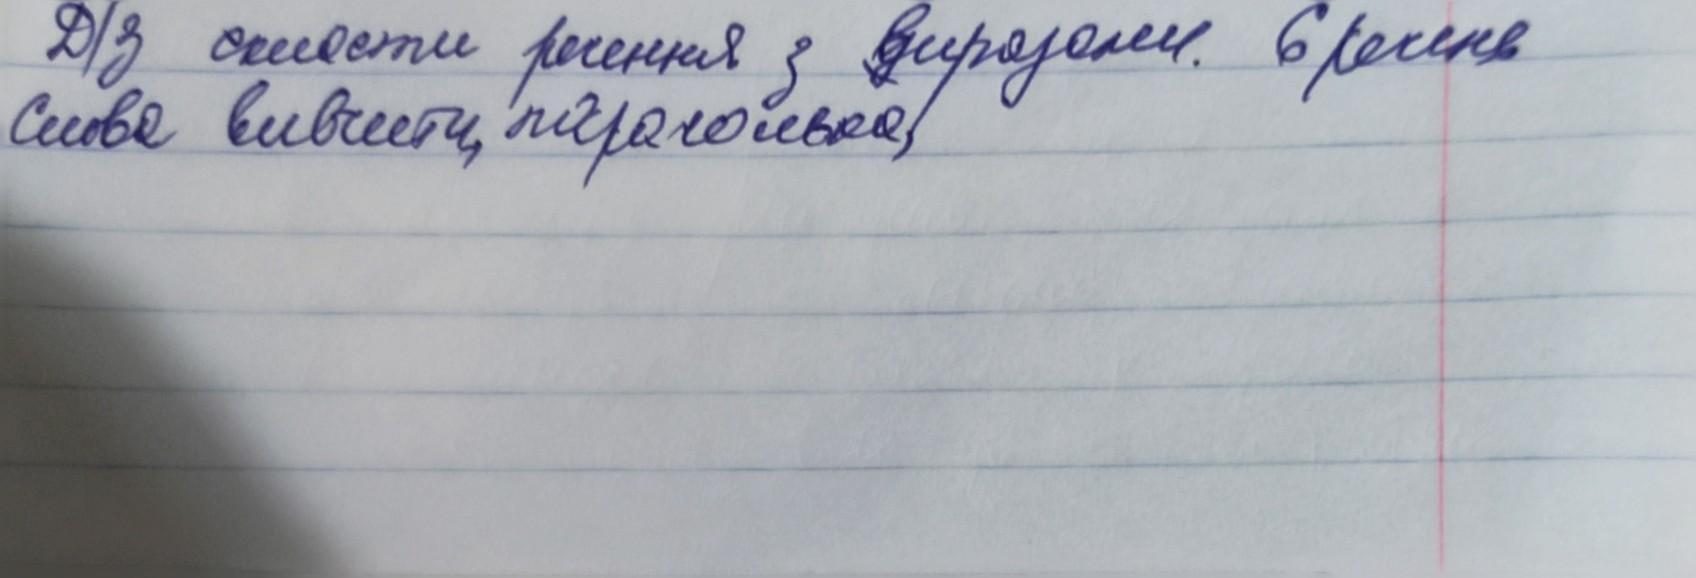 Д/З скласти речення з виразами. 6 речень
Слова вивчити,